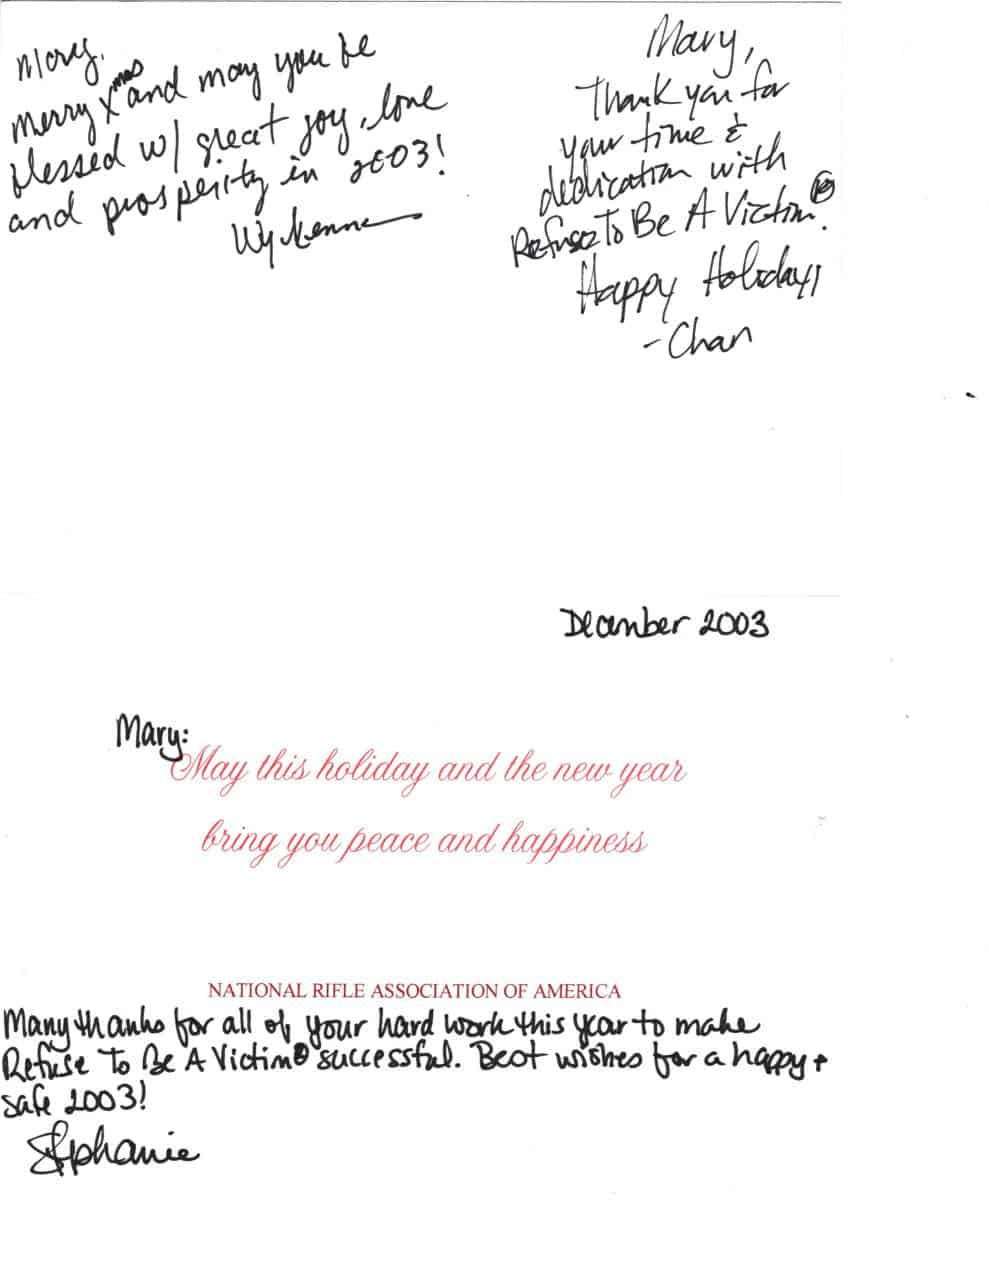 Mary,
Merry Xmas and may you be
blessed w/ great joy, love
and prosperity in 2003!
Mary,
Thank you for
your time &
dedication with
Refuse To Be A Victim®.
Happy Holidays!
-Chan
December 2003
Mary:
May this holiday and the new year
bring you peace and happiness
NATIONAL RIFLE ASSOCIATION OF AMERICA
Many thanks for all of your hard work this year to make
Refuse To Be A Victim® successful. Best wishes for a happy +
safe 2003!
Stephanie